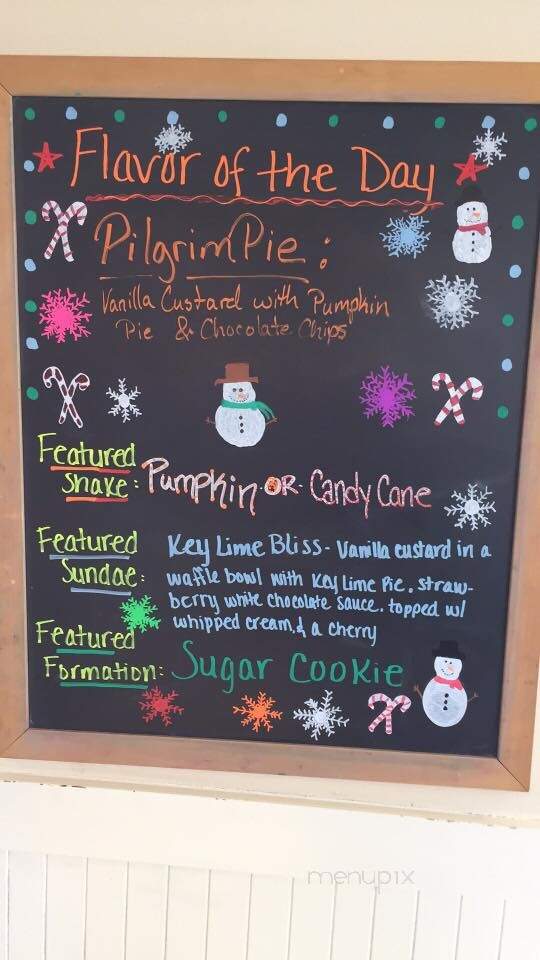 Flavor of the Day
Pilgrim Pie:
Vanilla Custard with Pumpkin
Pie & Chocolate Chips
Featured
Shake: Pumpkin OR Candy Cane
Featured
Sundae:
Key Lime Bliss - Vanilla custard in a
waffle bowl with Key Lime Pie, straw-
berry white chocolate sauce, topped w/
whipped cream, & a cherry
Featured
Formation: Sugar Cookie
menupix